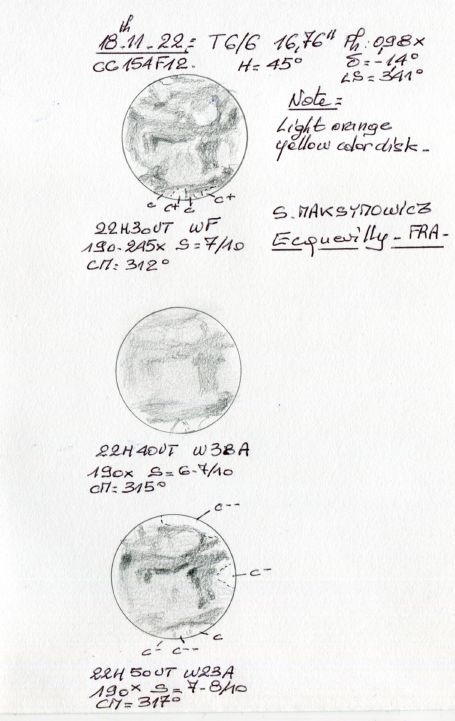 18th.11.22= T6/6 16,76" Ph: 0,98x
CC154F12. H= 45° δ=-1,4°
LS=341°
Note=
Light orange
yellow color disk-
c c+ c c+
22H30UT WF
190-245x S=7/10
CM: 312°
S. MAKSYMOWICZ
Ecquevilly-FRA-
22H40UT W38A
190x S=6-7/10
CM: 315°
c--
c-
c- c-- c
22H50UT W23A
190x S=7-8/10
CM: 317°